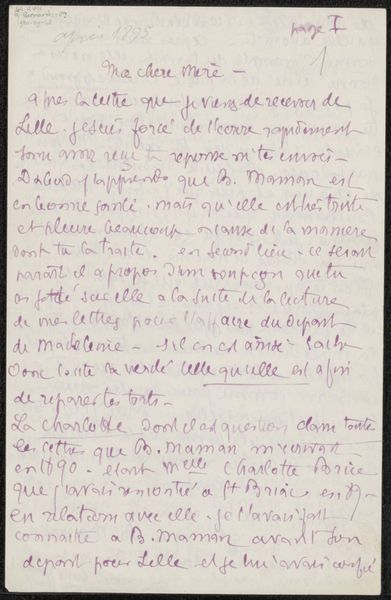 après 1895
page I
1
Ma chere Mere –
après la lettre que je viens de recevoir de
Lille. je suis forcé de t'ecrire rapidement
sans avoir reçu ta reponse m'tes envois –
Dabord j'apprends que B. Maman est
en bonne santé. mais qu'elle est très triste
et pleure beaucoup a cause de la maniere
dont tu la traite. en second lieu. ce serait
parait il a propos d'un soupçon que tu
as sur elle a la suite de la lecture
de mes lettres pour l'affaire du depart
de Madeleine – s'il en est ainsi –
Donc toute la verité telle qu'elle est afin
de reparer tes torts –
La Charlotte dont il est question dans toute
les lettres que B. Maman m'ecrivait
en 1890 – etant Melle Charlotte
que j'avais rencontré a St Briac en 89 –
en relations avec elle – je l'avais fait
connaitre a B. Maman avant son
depart pour Lille et je lui avais confié